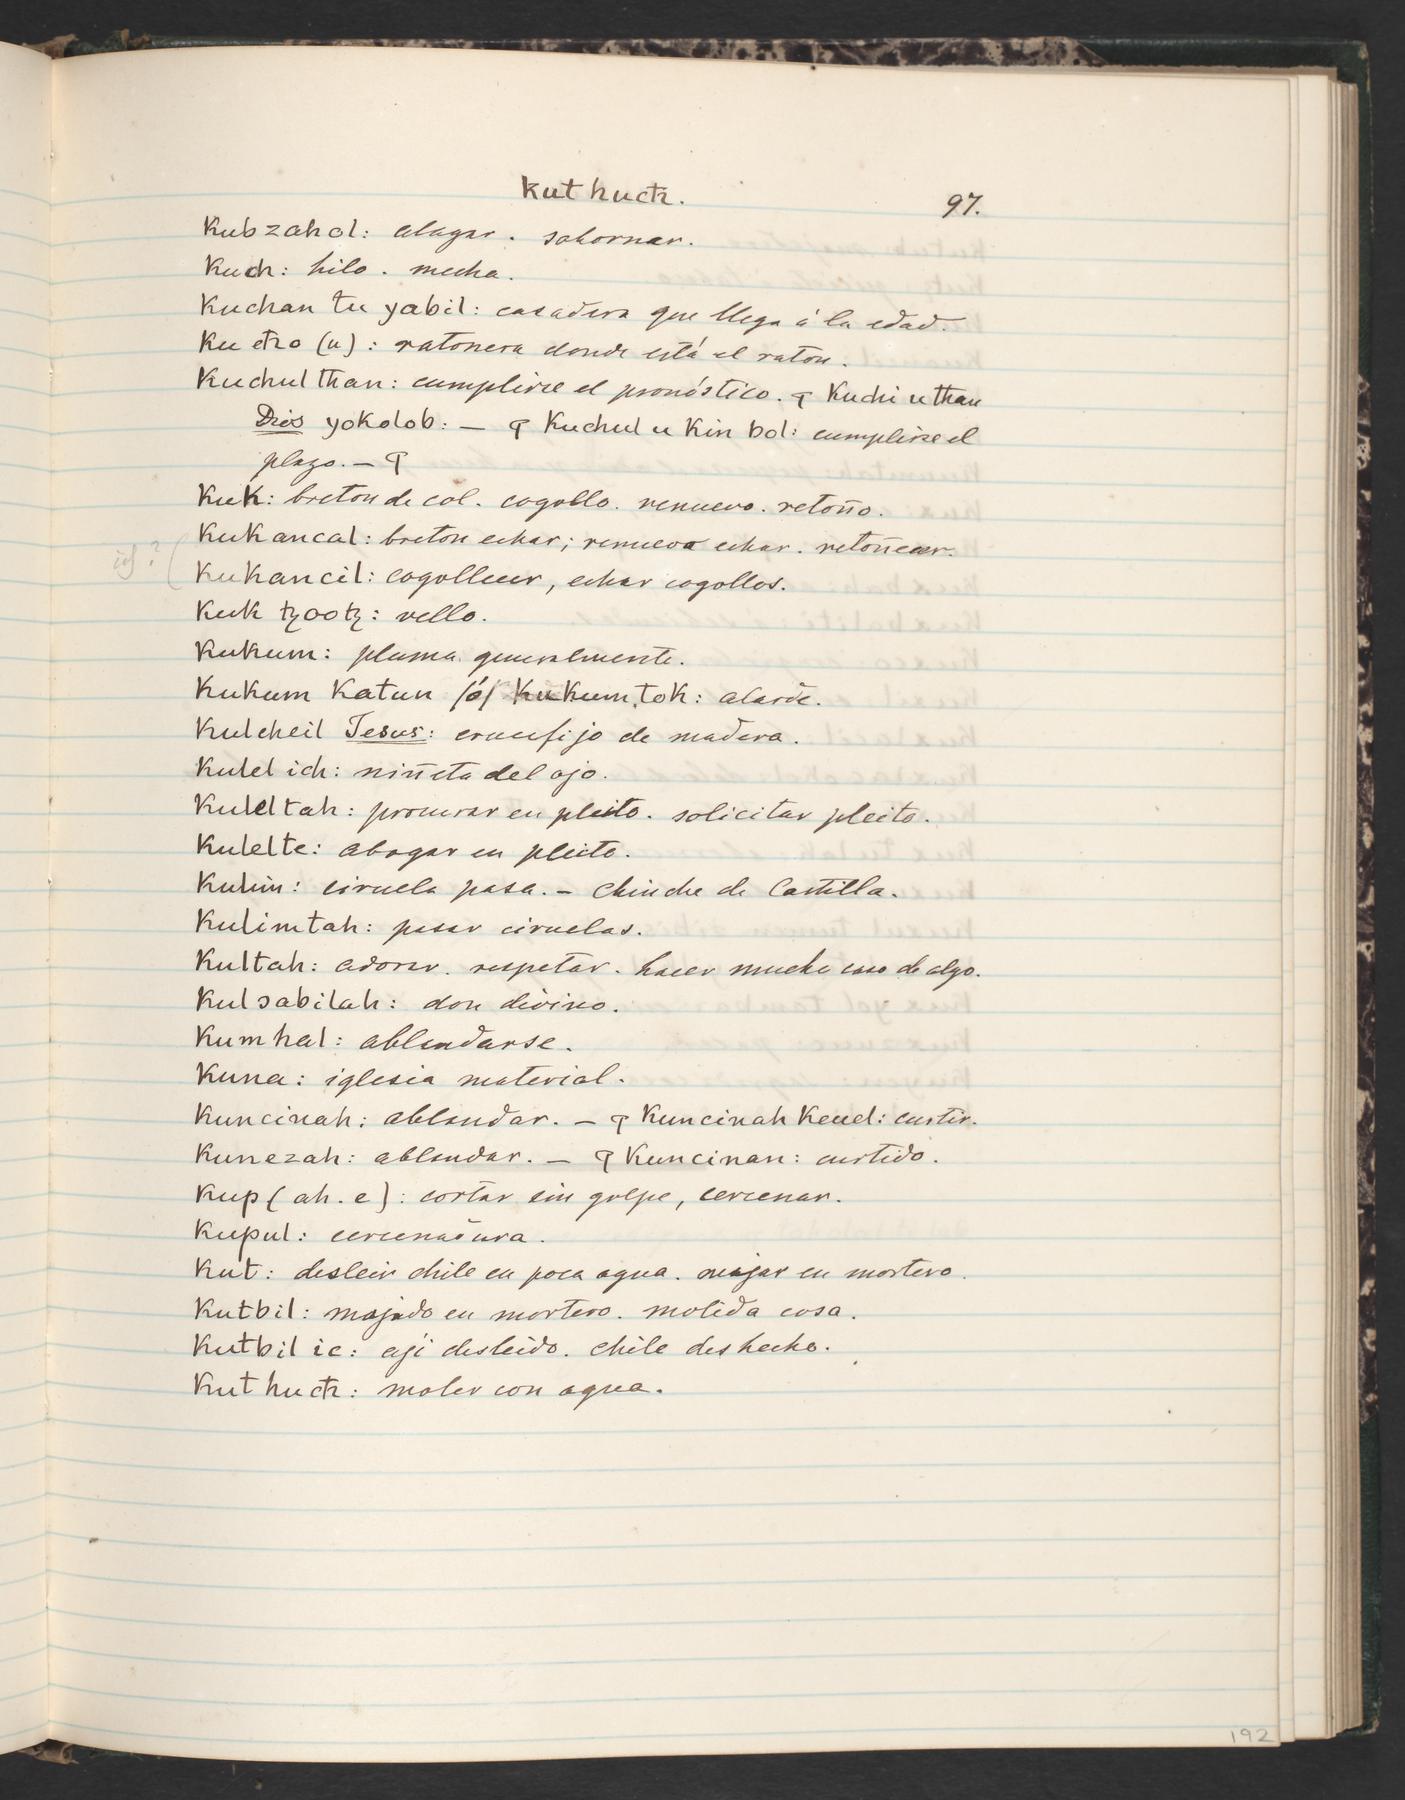 Kuthuch.
97.
Kubzahol: alagar. sobornar.
Kuch: hilo. mecha.
Kuchan tu yabil: casadera que llega á la edad.
Ku cħo (u): ratonera donde está el raton.
Kuchul than: cumplirse el pronóstico. ¶ Kuchi u than
Dios yokolob: — ¶ Kuchul u Kin bol: cumplirse el
plazo. — ¶
Kuk: breton de col. cogollo. renuevo. retoño.
Kukancal: breton echar; renuevo echar. retoñecer.
Kukancil: cogollecer, echar cogollos.
Kuk tzootz: vello.
Kukum: pluma generalmente.
Kukum Katun (ó) Kukum tok: alarde.
Kulcheil Jesus: crucifijo de madera.
Kulel ich: niñeta del ojo.
Kuleltah: procurar en pleito. solicitar pleito.
Kulelte: abogar en pleito.
Kulim: ciruela pasa. — Chinche de Castilla.
Kulimtah: pasar ciruelas.
Kultah: adorar. respetar. hacer mucho caso de algo.
Kulsabilah: don divino.
Kumhal: ablandarse.
Kuna: iglesia material.
Kuncinah: ablandar. — ¶ Kuncinah Keuel: curtir.
Kunezah: ablandar. — ¶ Kuncinan: curtido.
Kup (ah. e): cortar sin golpe, cercenar.
Kupul: cercenadura.
Kut: desleir chile en poca agua. majar en mortero.
Kutbil: majado en mortero. molida cosa.
Kutbil ic: ají desleido. chile deshecho.
Kuthuch: moler con agua.
192